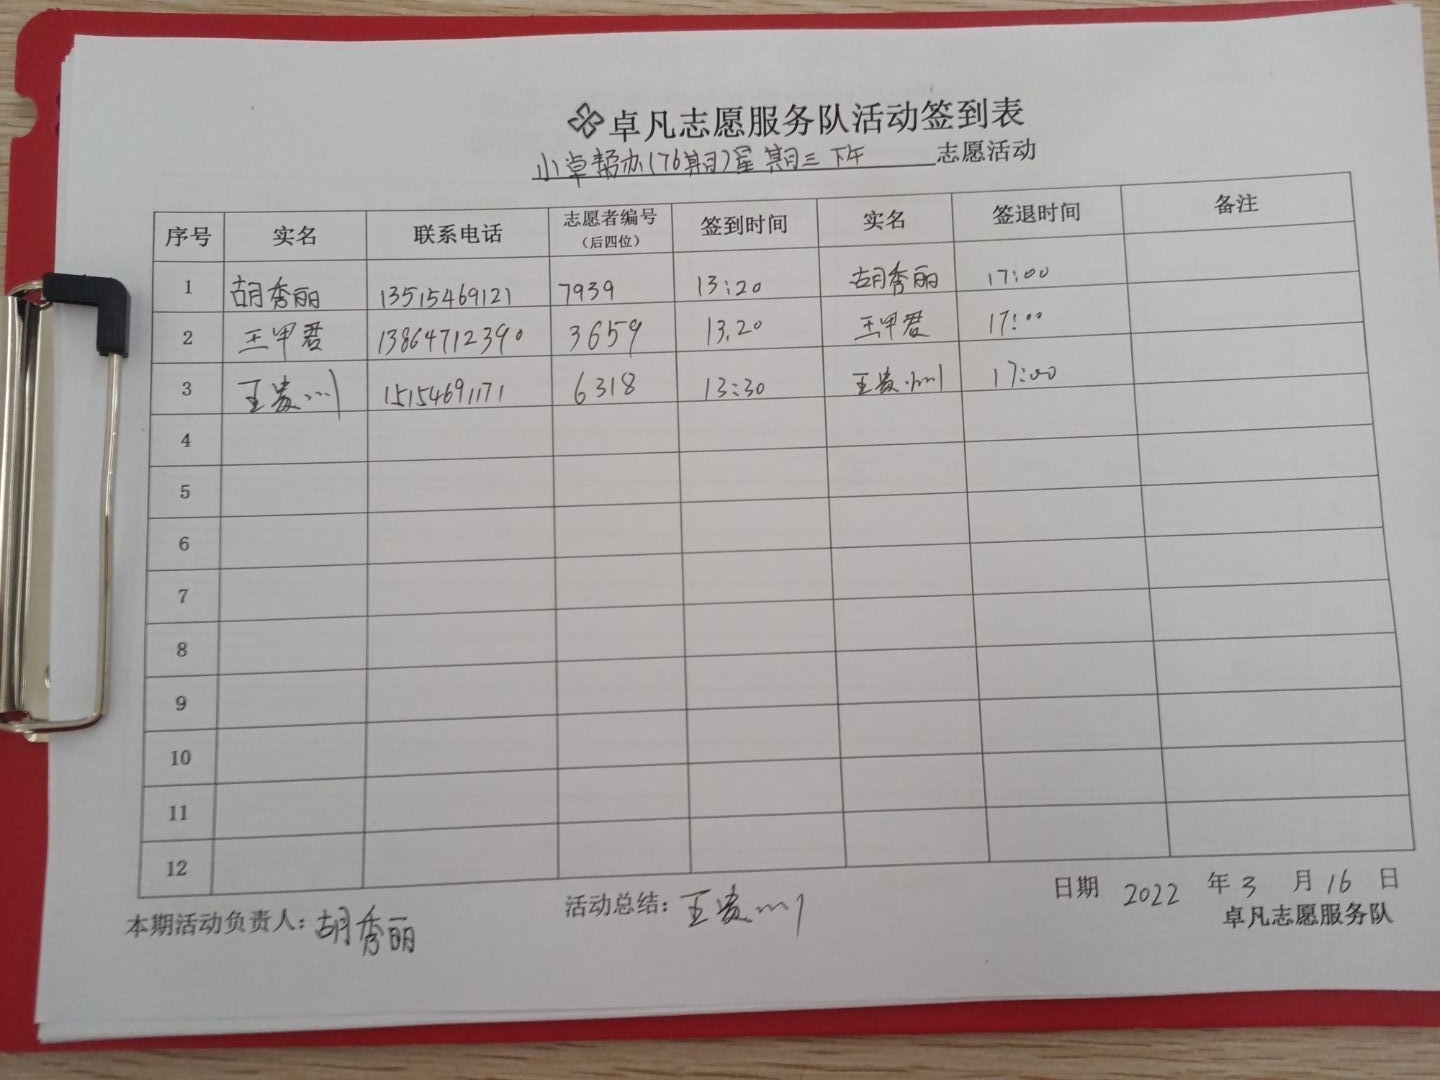 卓凡志愿服务队活动签到表
小卓帮办(76期)星期三下午 志愿活动
序号 实名 联系电话 志愿者编号（后四位） 签到时间 实名 签退时间 备注
1 胡秀丽 13515469121 7939 13:20 胡秀丽 17:00
2 王甲君 13864712390 3659 13.20 王甲君 17:00
3 王贵州 15154691171 6318 13:30 王贵州 17:00
4
5
6
7
8
9
10
11
12
本期活动负责人：胡秀丽 活动总结：王贵州 日期 2022 年 3 月 16 日
卓凡志愿服务队